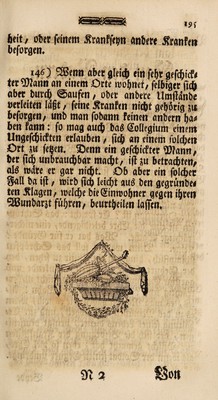 195
heit, oder seinem Krankseyn andere Kranken
besorgen.
146) Wenn aber gleich ein sehr geschick-
ter Mann an einem Orte wohnet, selbiger sich
aber durch Saufen, oder andere Umstände
verleiten läßt, seine Kranken nicht gehörig zu
besorgen, und man sodann keinen andern ha-
ben kann: so mag auch das Collegium einem
Ungeschickten erlauben, sich an einem solchen
Ort zu setzen. Denn ein geschickter Mann,
der sich unbrauchbar macht, ist zu betrachten,
als wäre er gar nicht. Ob aber ein solcher
Fall da ist, wird sich leicht aus den gegründe-
ten Klagen, welche die Einwohner gegen ihren
Wundarzt führen, beurtheilen lassen.
N 2 Von